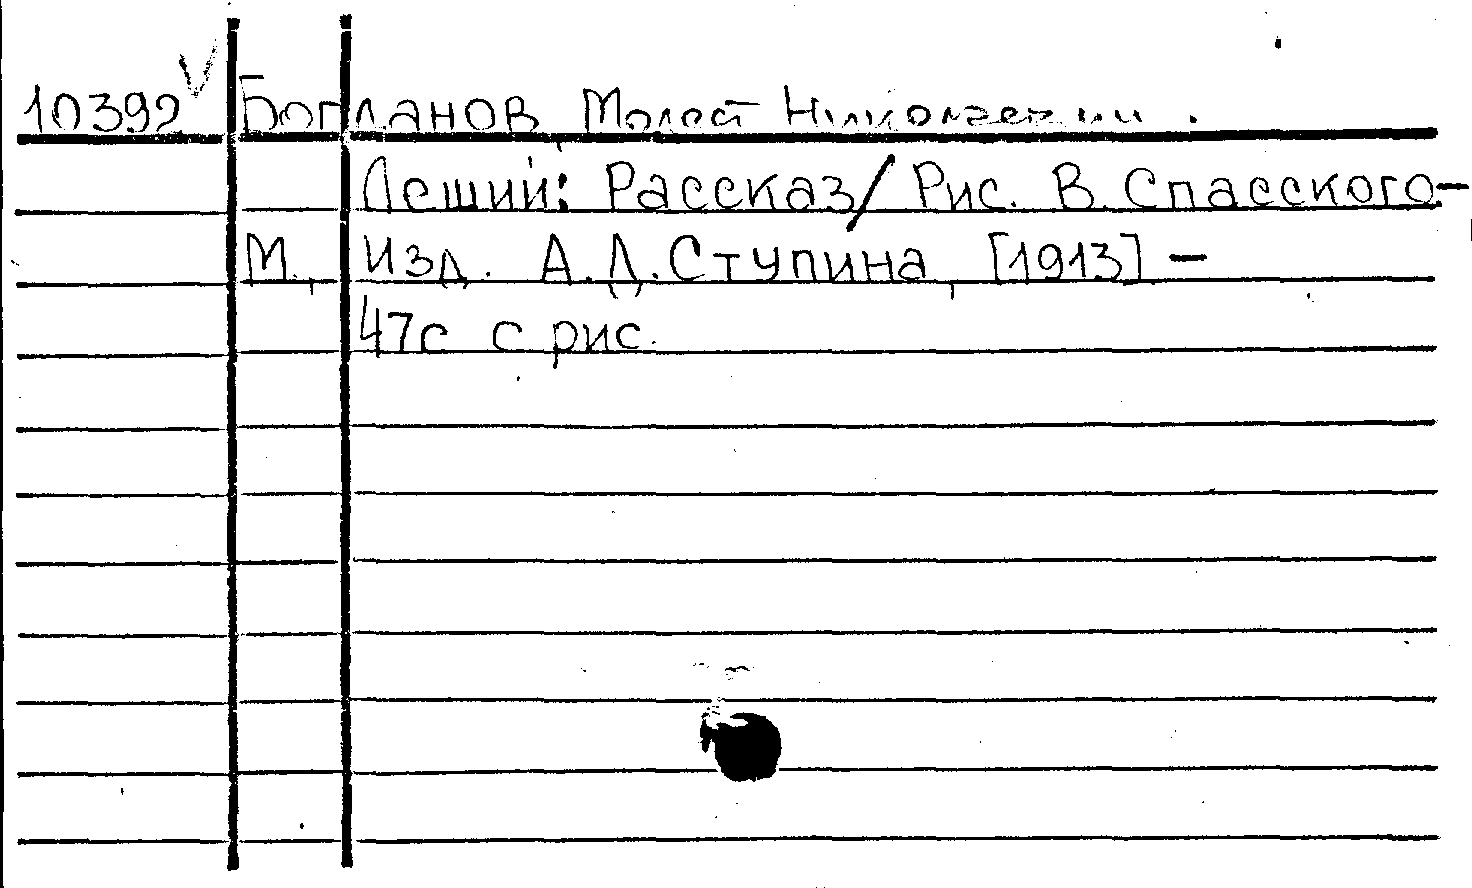 10392 V Богданов Модест Николаевич.
Леший: Рассказ/ Рис. В. Спасского-
М., Изд. А.Д.Ступина, [1913] –
47с с рис.